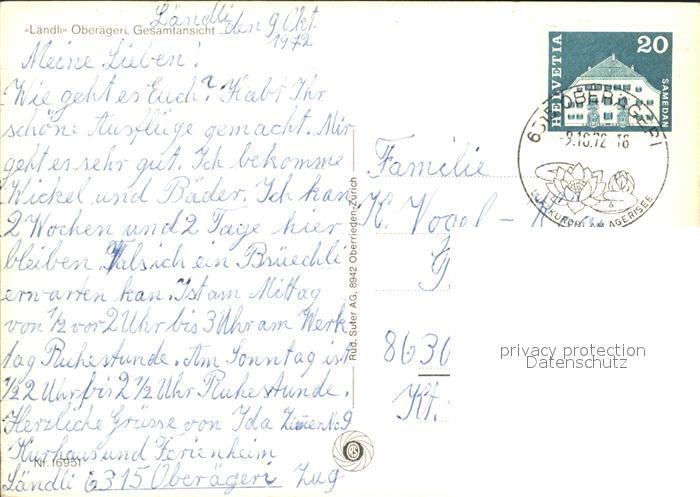 «Ländli» Oberägeri, Gesamtansicht
Ländli den 9 Okt.
1972
Meine Lieben!
Wie geht es Euch? Habt Ihr
schöne Ausflüge gemacht. Mir
geht es sehr gut. Ich bekomme
Wickel und Bäder. Ich kan
2 Wochen und 2 Tage hier
bleiben. Falls ich ein Brüechli
erwarten kan. Ist am Mittag
von 1/2 vor 2 Uhr bis 3 Uhr am Werk
tag Ruhestunde. Am Sonntag ist
1/2 2 Uhr bis 2 1/2 Uhr Ruhestunde.
Herzliche Grüsse von Ida Zimer No 9
Kurhaus und Ferienheim
Nr. 16951
Ländli 6315 Oberägeri Zug
Rud. Suter AG, 8942 Oberrieden-Zürich
HELVETIA
20
SAMEDAN
OBERÄGERI
-9.10.72 18
KURORT AM ÄGERISEE
Familie
K. Vogel -
8630
Kt.
privacy protection
Datenschutz